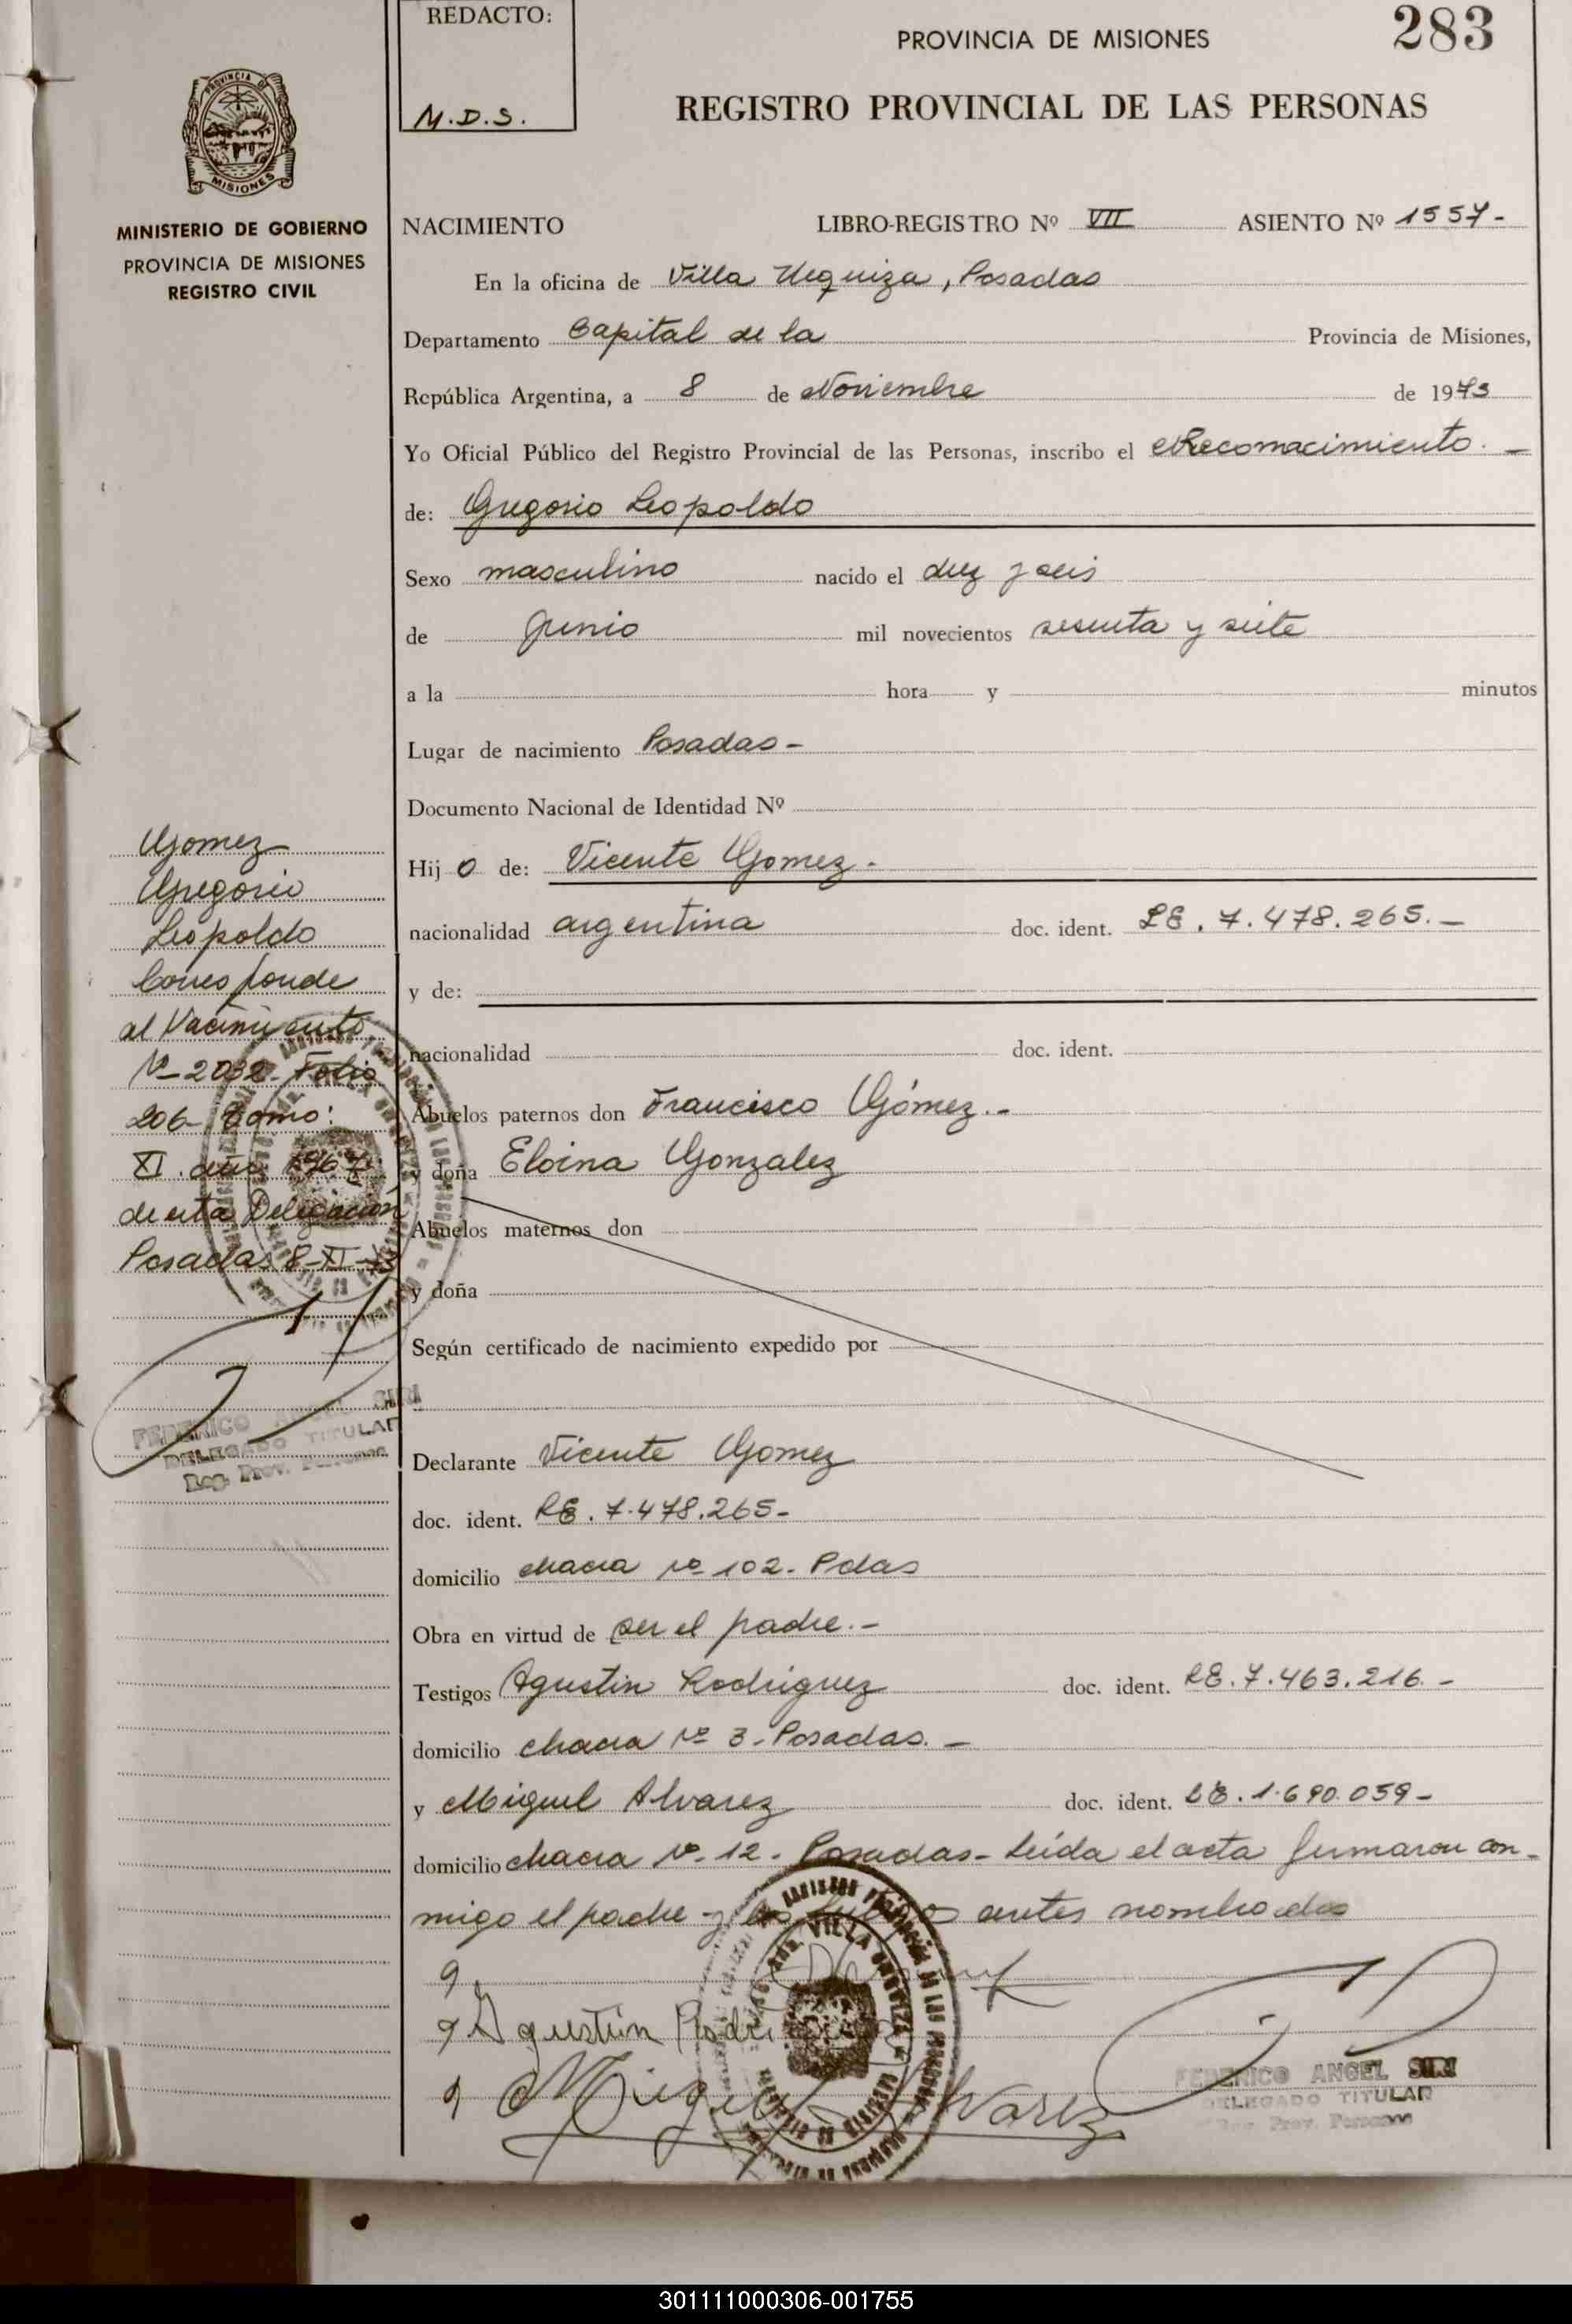 REDACTO:
M.D.S.
PROVINCIA DE MISIONES
283
REGISTRO PROVINCIAL DE LAS PERSONAS
PROVINCIA DE
MISIONES
MINISTERIO DE GOBIERNO
PROVINCIA DE MISIONES
REGISTRO CIVIL
NACIMIENTO LIBRO-REGISTRO Nº VII ASIENTO Nº 1557-
En la oficina de Villa Urquiza, Posadas
Departamento Capital de la Provincia de Misiones,
República Argentina, a 8 de Noviembre de 1973
Yo Oficial Público del Registro Provincial de las Personas, inscribo el Reconocimiento.-
de: Gregorio Leopoldo
Sexo masculino nacido el diez y seis
de Junio mil novecientos sesenta y siete
a la hora y minutos
Lugar de nacimiento Posadas-
Documento Nacional de Identidad Nº
Hij o de: Vicente Gomez.
nacionalidad argentina doc. ident. LE. 7.478.265.-
y de:
nacionalidad doc. ident.
Abuelos paternos don Francisco Gómez.-
y doña Eloina Gonzalez
Abuelos maternos don
y doña
Según certificado de nacimiento expedido por
Declarante Vicente Gomez
doc. ident. LE. 7.478.265-
domicilio chacra Nº 102. Pdas
Obra en virtud de ser el padre.-
Testigos Agustin Rodriguez doc. ident. LE. 7.463.216.-
domicilio chacra Nº 3-Posadas.-
y Miguel Alvarez doc. ident. LE. 1.690.059-
domicilio chacra Nº 12. Posadas- Leída el acta firmaron con-
migo el padre y los antes nombrados
Agustin Rodri
Miguel Alvarez
FEDERICO ANGEL SIRI
DELEGADO TITULAR
Reg. Prov. Personas
Gomez
Gregorio
Leopoldo
Corresponde
al Nacimiento
Nº 2032- Folio
206- Tomo:
XI. año 1967.
de esta Delegación
Posadas 8-XI-73
FEDERICO ANGEL SIRI
DELEGADO TITULAR
Reg. Prov. Personas
301111000306-001755